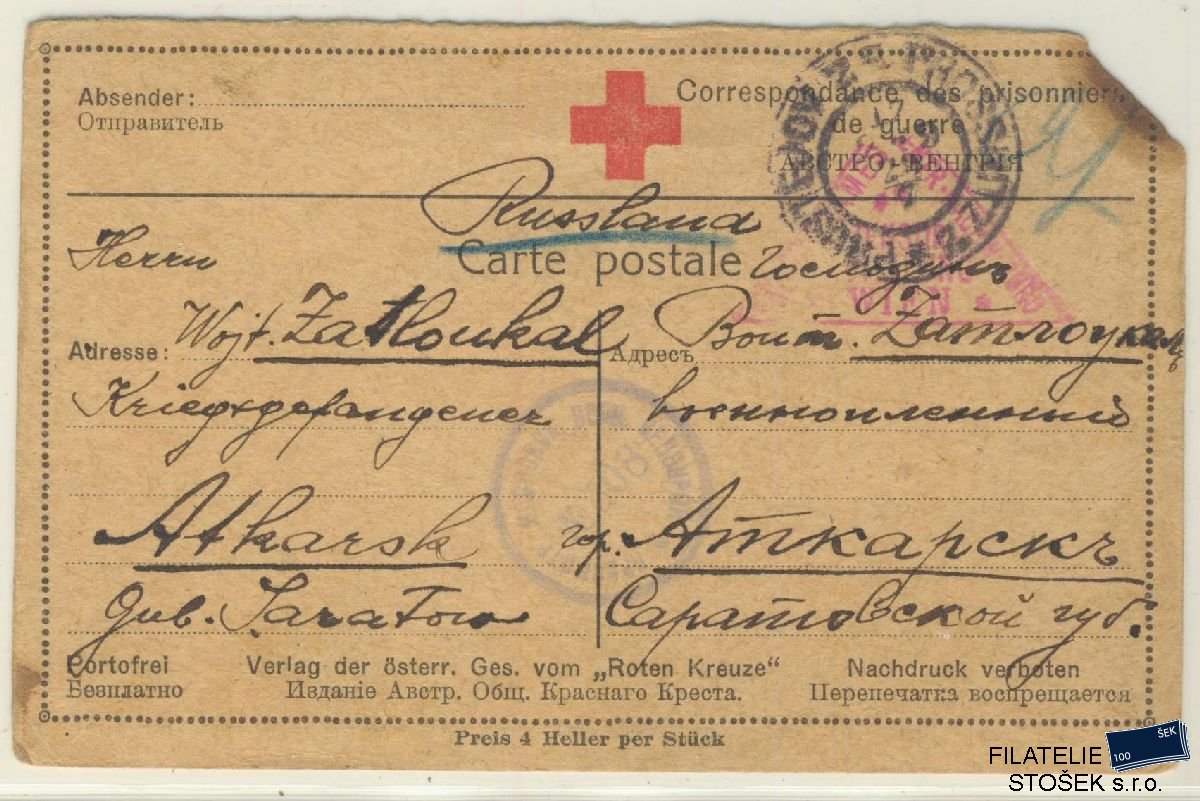 Absender:
Отправитель
Correspondance des prisonniers
de guerre
АВСТРО-ВЕНГРІЯ
Russland
Carte postale
Herrn
Господинъ
Adresse: Wojt. Zatloukal
Адресъ Войт. Затлоукалъ
Kriegsgefangener
военнопленный
Atkarsk
гор. Аткарскъ
Gub. Saratow
Саратовской губ.
Portofrei
Безплатно
Verlag der österr. Ges. vom „Roten Kreuze“
Изданіе Австр. Общ. Краснаго Креста.
Nachdruck verboten
Перепечатка воспрещается
Preis 4 Heller per Stück
WIEN
FILATELIE
STOŠEK s.r.o.
100 ŠEK